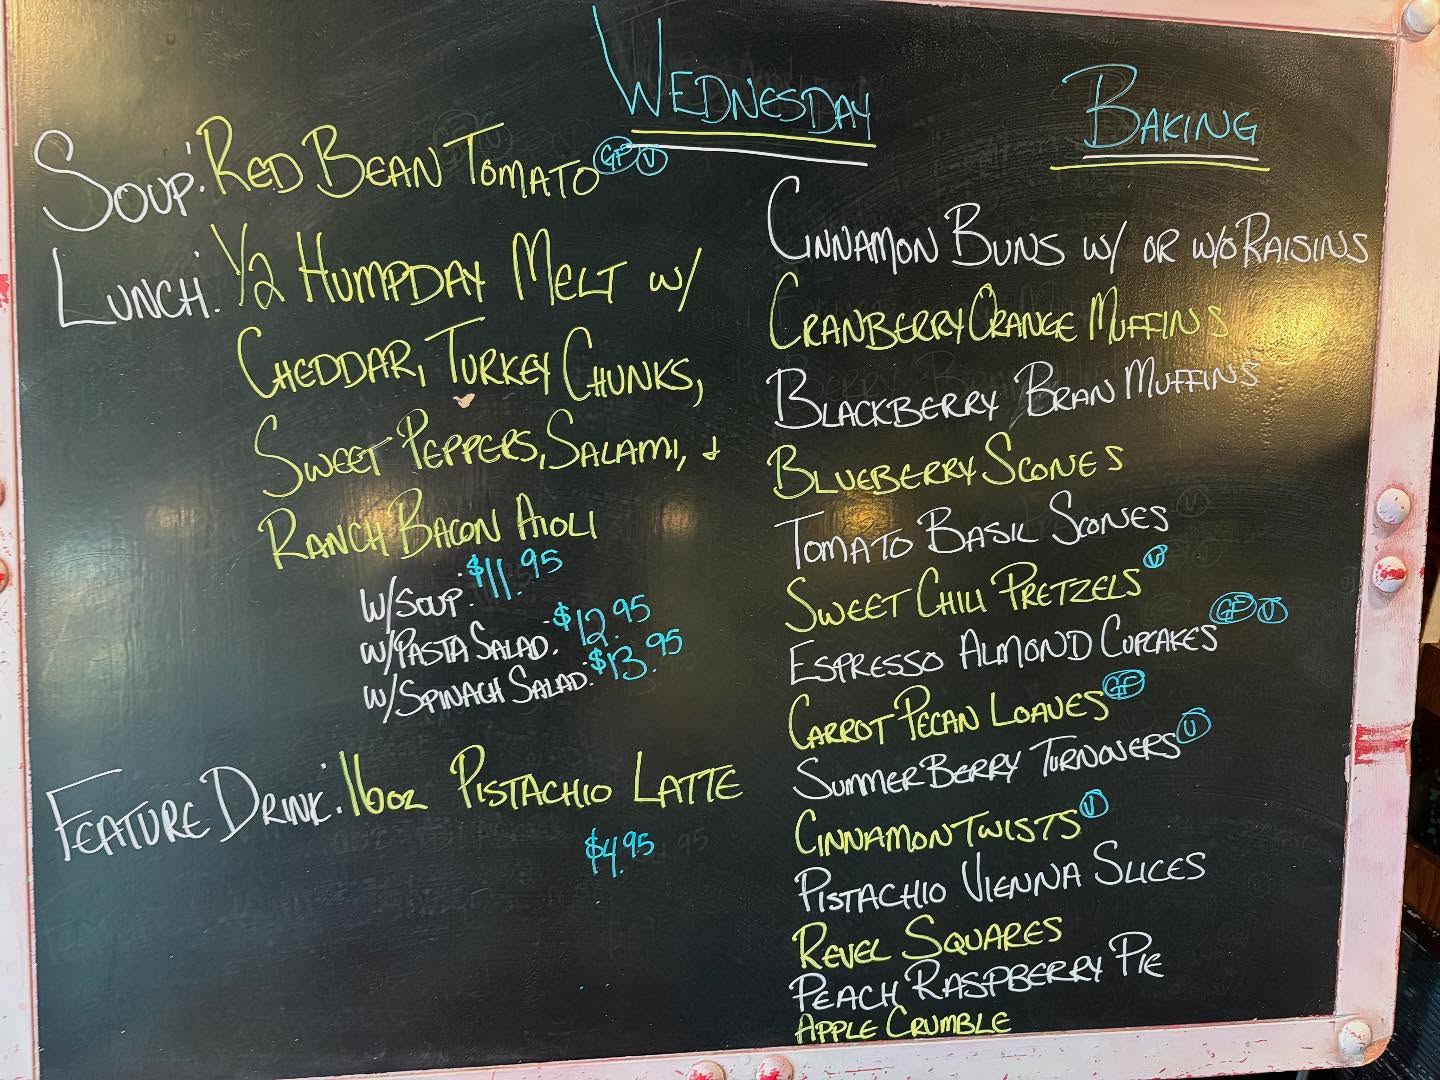 WEDNESDAY
SOUP: RED BEAN TOMATO GF V
LUNCH: 1/2 HUMPDAY MELT W/
CHEDDAR, TURKEY CHUNKS,
SWEET PEPPERS, SALAMI, +
RANCH BACON AIOLI
W/SOUP: $11.95
W/PASTA SALAD: $12.95
W/SPINACH SALAD: $13.95
FEATURE DRINK: 16oz PISTACHIO LATTE
$4.95
BAKING
CINNAMON BUNS W/ OR W/O RAISINS
CRANBERRY ORANGE MUFFINS
BLACKBERRY BRAN MUFFINS
BLUEBERRY SCONES
TOMATO BASIL SCONES
SWEET CHILI PRETZELS V
ESPRESSO ALMOND CUPCAKES GF V
CARROT PECAN LOAVES GF
SUMMER BERRY TURNOVERS V
CINNAMON TWISTS V
PISTACHIO VIENNA SLICES
REVEL SQUARES
PEACH RASPBERRY PIE
APPLE CRUMBLE